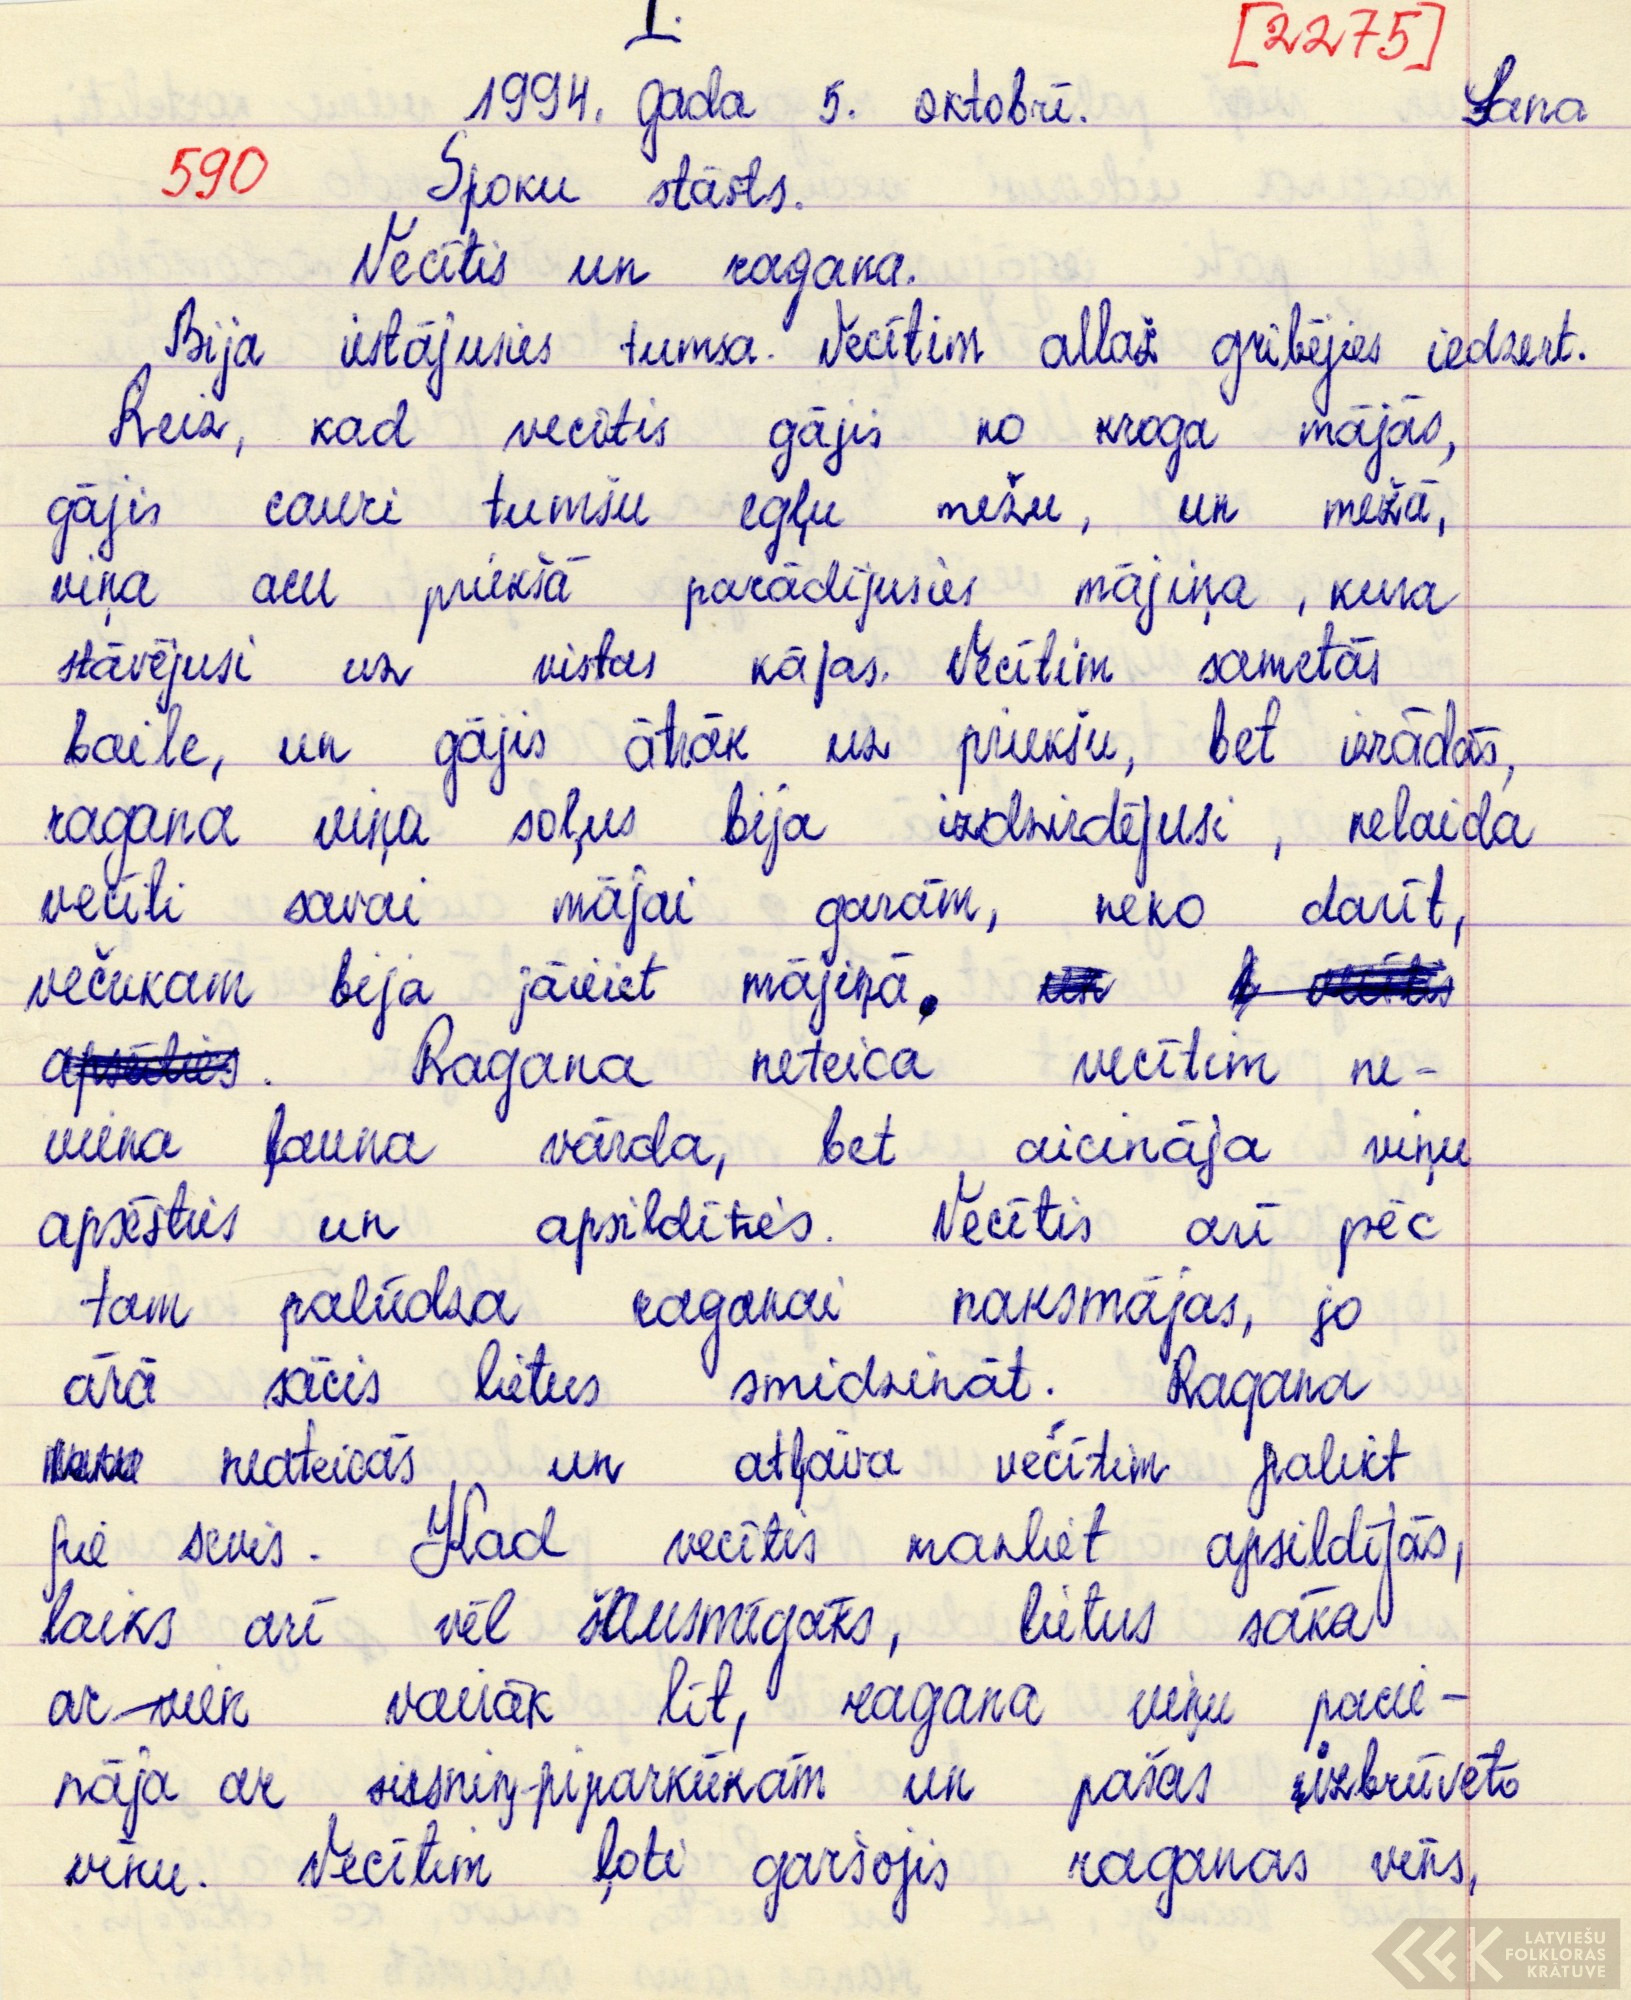 I.
[2275]
1994. gada 5. oktobrī. Sana
590 Spoku stāsts.
Vecītis un ragana.
Bija iestājusies tumsa. Vecītim allaž gribējies iedzert.
Reiz, kad vecītis gājis no kroga mājās,
gājis cauri tumšu egļu mežu, un mežā,
viņa acu priekšā parādījusies mājiņa, kura
stāvējusi uz vistas kājas. Vecītim sametās
baile, un gājis ātrāk uz priekšu, bet izrādās,
ragana viņa soļus bija izdzirdējusi, nelaida
vecīti savai mājai garām, neko darīt,
večukam bija jāieiet mājiņā. un vecītis
apsēdies. Ragana neteica vecītim ne-
viena ļauna vārda, bet aicināja viņu
apsēsties un apsildīties. Vecītis arī pēc
tam palūdza raganai naksmājas, jo
ārā sācis lietus smidzināt. Ragana
neateicās un atļāva vecītim palikt
pie sevis. Kad vecītis mazliet apsildījās,
laiks arī vēl šausmīgāks, lietus sāka
ar vien vairāk līt, ragana viņu pacie-
nāja ar siesniņ-piparkūkām un pašas izbrūvēto
vīnu. Vecītim ļoti garšojis raganas vīns,
LATVIEŠU
FOLKLORAS
KRĀTUVE